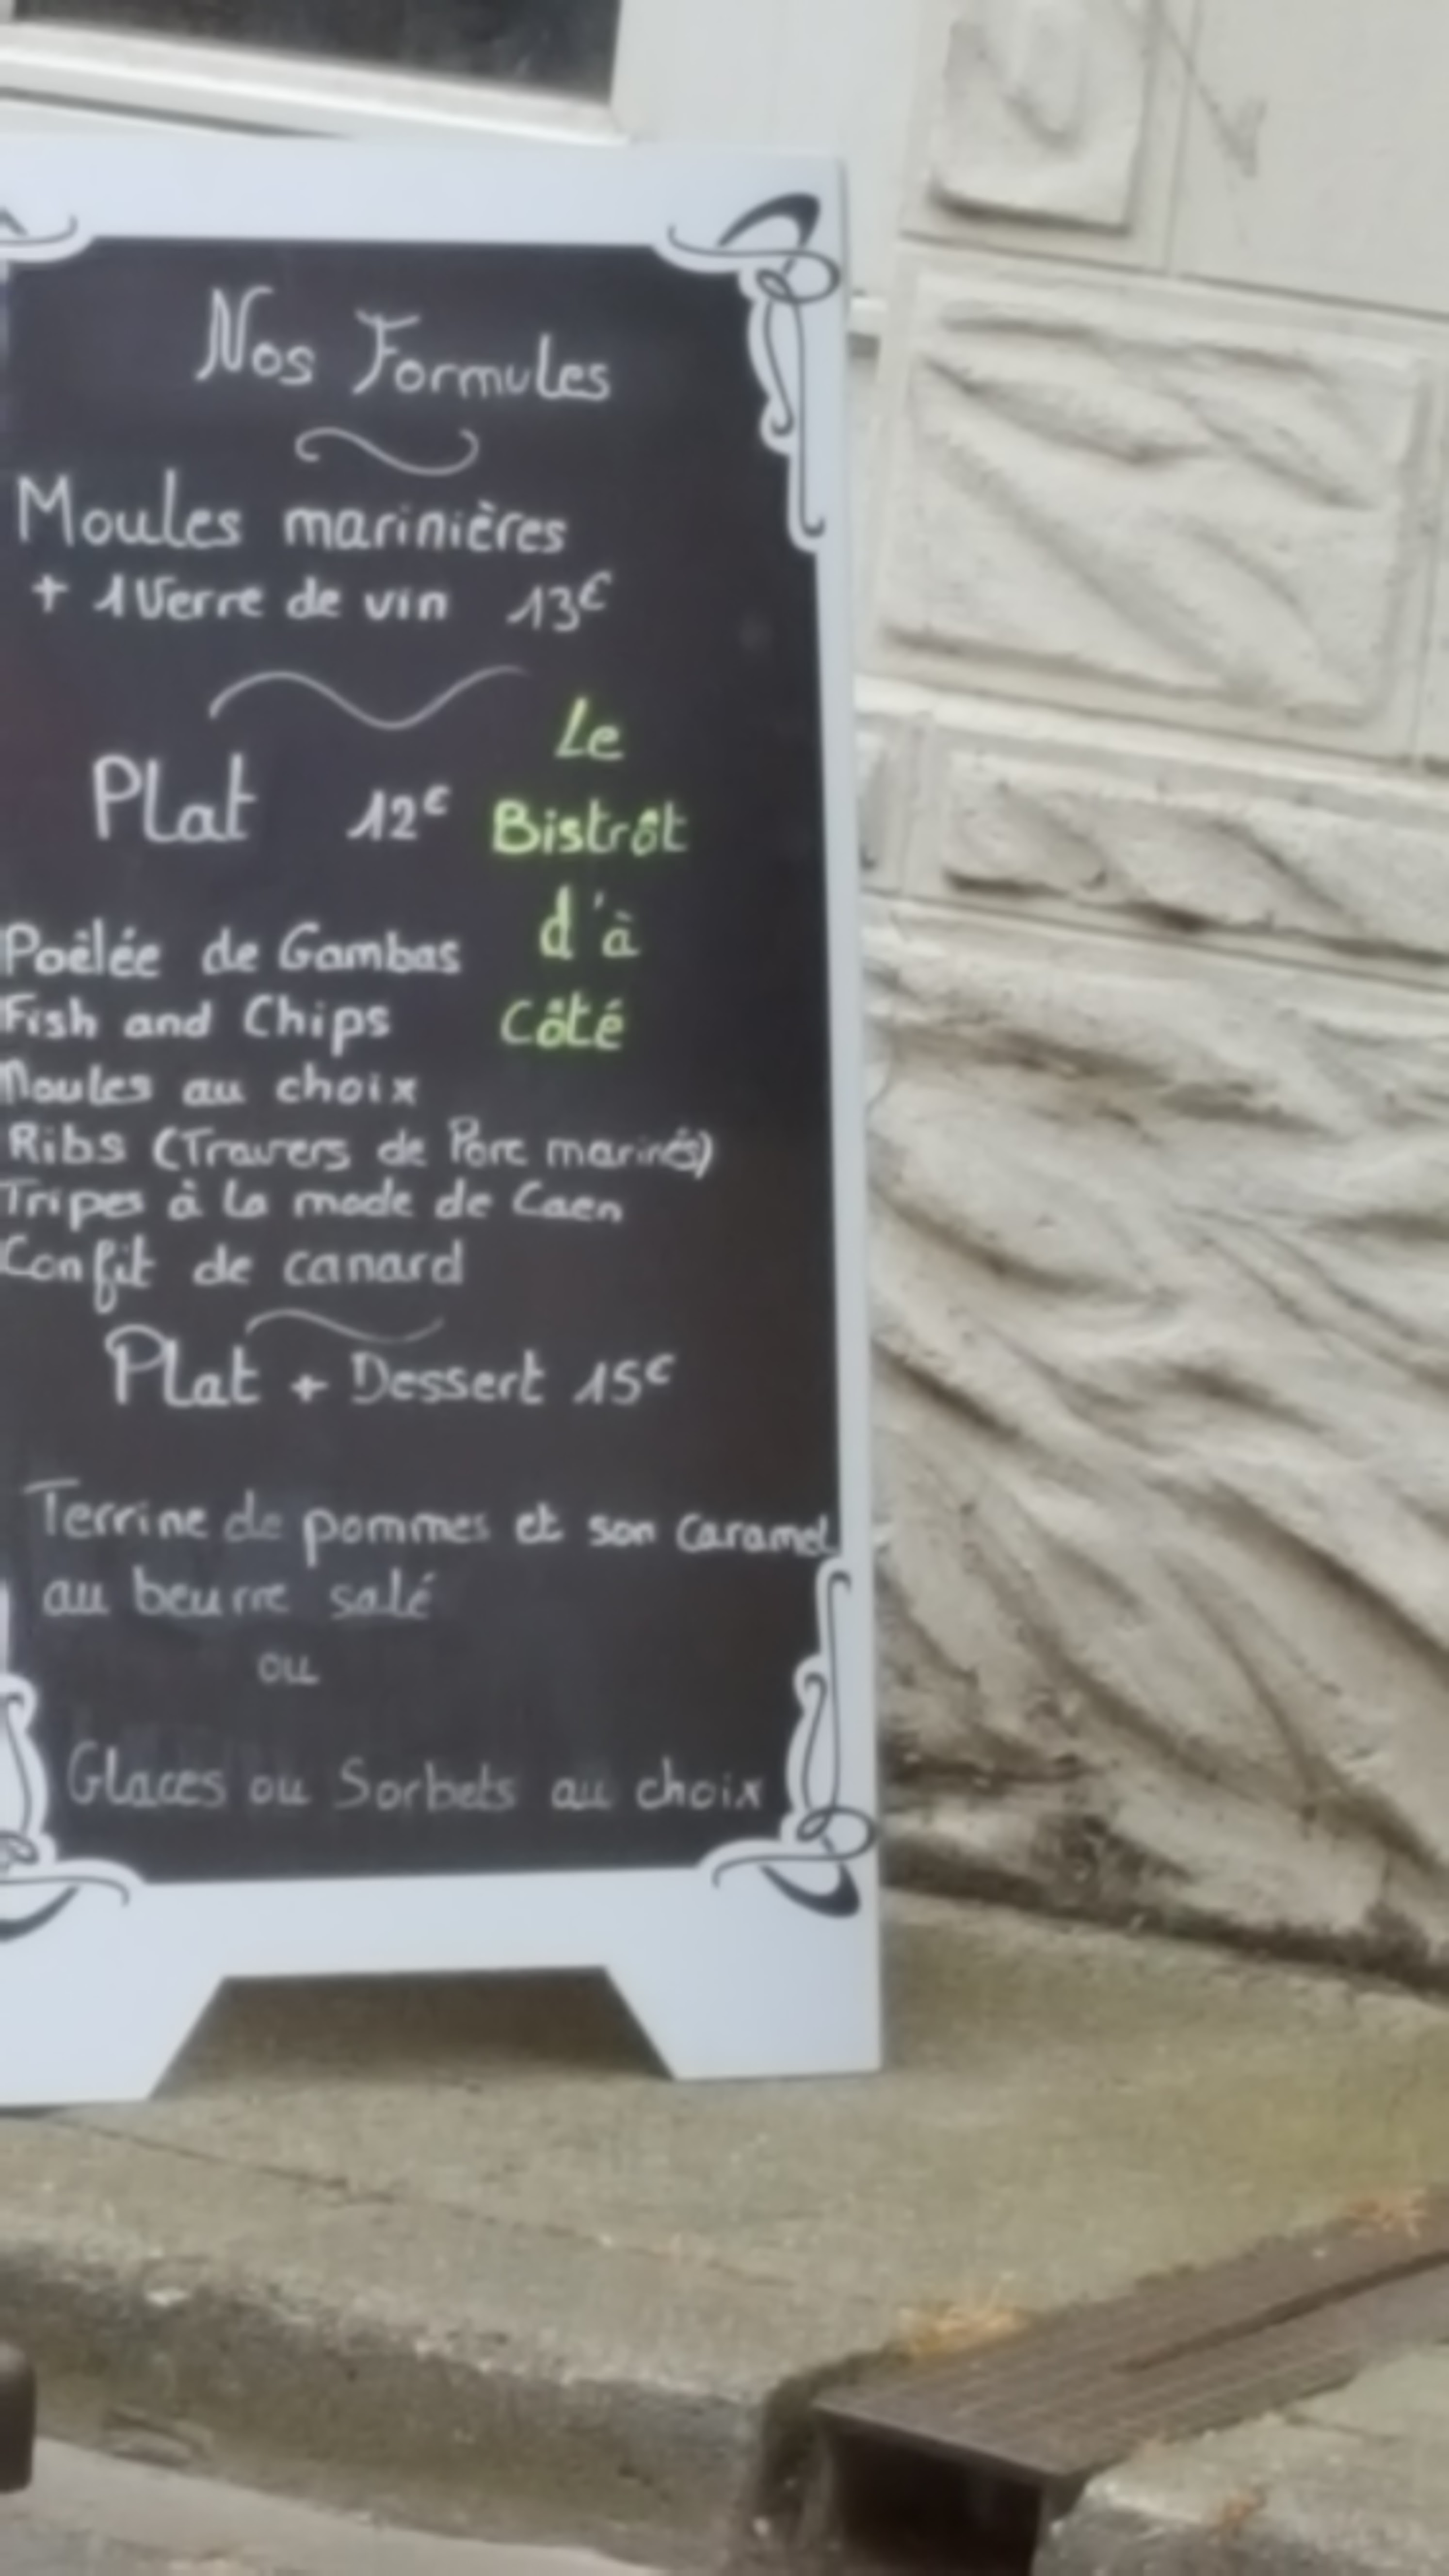 Nos Formules
Moules marinières
+ 1 Verre de vin 13€
Plat 12€
Le
Bistrôt
d'à
Côté
Poêlée de Gambas
Fish and Chips
Moules au choix
Ribs (Travers de Porc marinés)
Tripes à la mode de Caen
Confit de canard
Plat + Dessert 15€
Terrine de pommes et son Caramel
au beurre salé
ou
Glaces ou Sorbets au choix